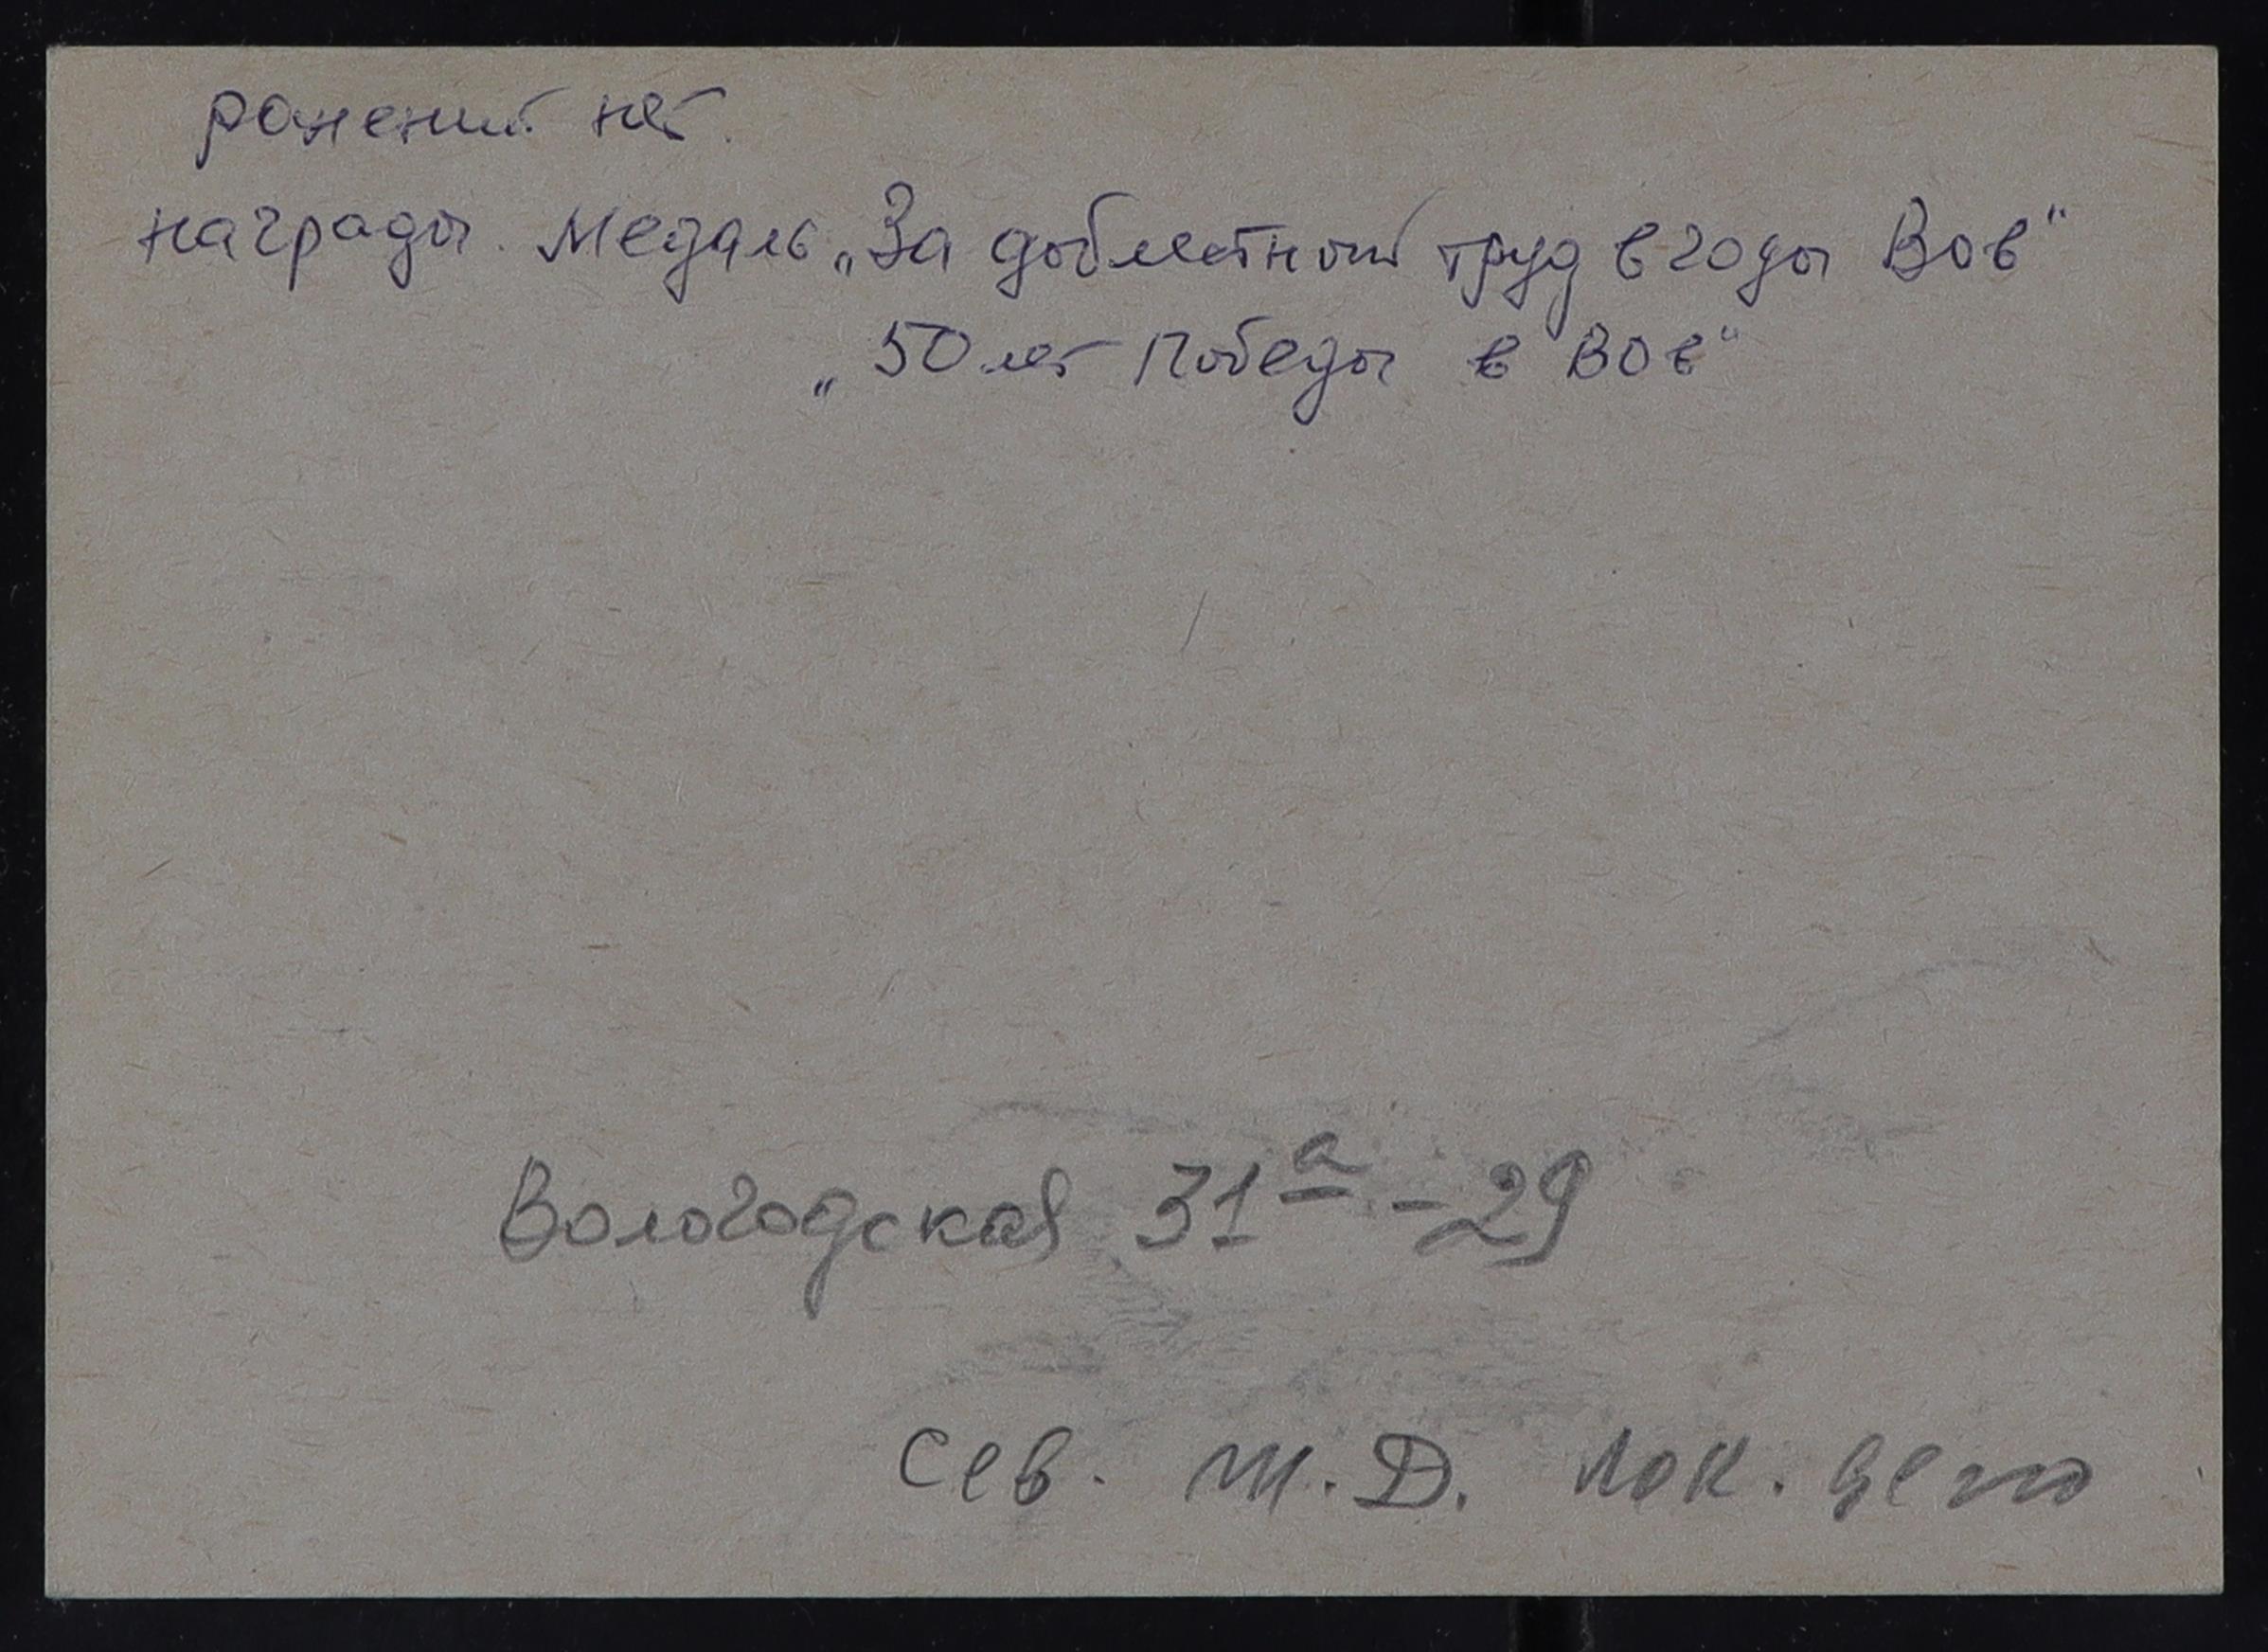 ранений нет.
награды. Медаль „За доблестный труд в годы Вов“
„50 лет Победы в ВОв“
Вологодская 31а - 29
Сев. Ж.Д. лок. депо